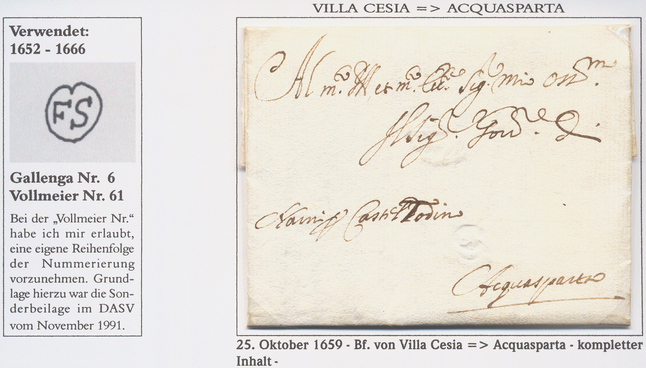 VILLA CESIA => ACQUASPARTA
Verwendet:
1652 - 1666
FS
Gallenga Nr. 6
Vollmeier Nr. 61
Bei der „Vollmeier Nr.“
habe ich mir erlaubt,
eine eigene Reihenfolge
der Nummerierung
vorzunehmen. Grund-
lage hierzu war die Son-
derbeilage im DASV
vom November 1991.
Al
Sig.
Todin
Acquasparta
25. Oktober 1659 - Bf. von Villa Cesia => Acquasparta - kompletter
Inhalt -